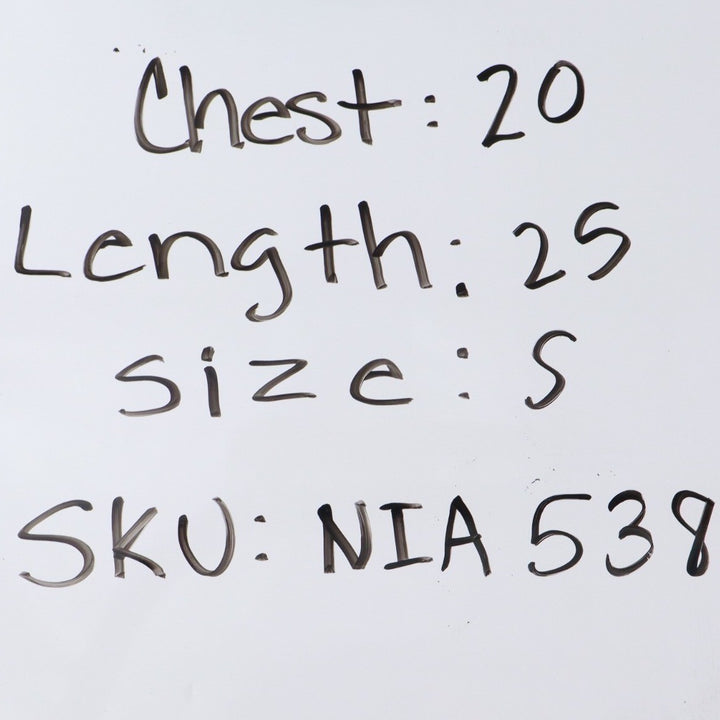 Chest: 20
Length: 25
Size: S
SKU: NIA 538